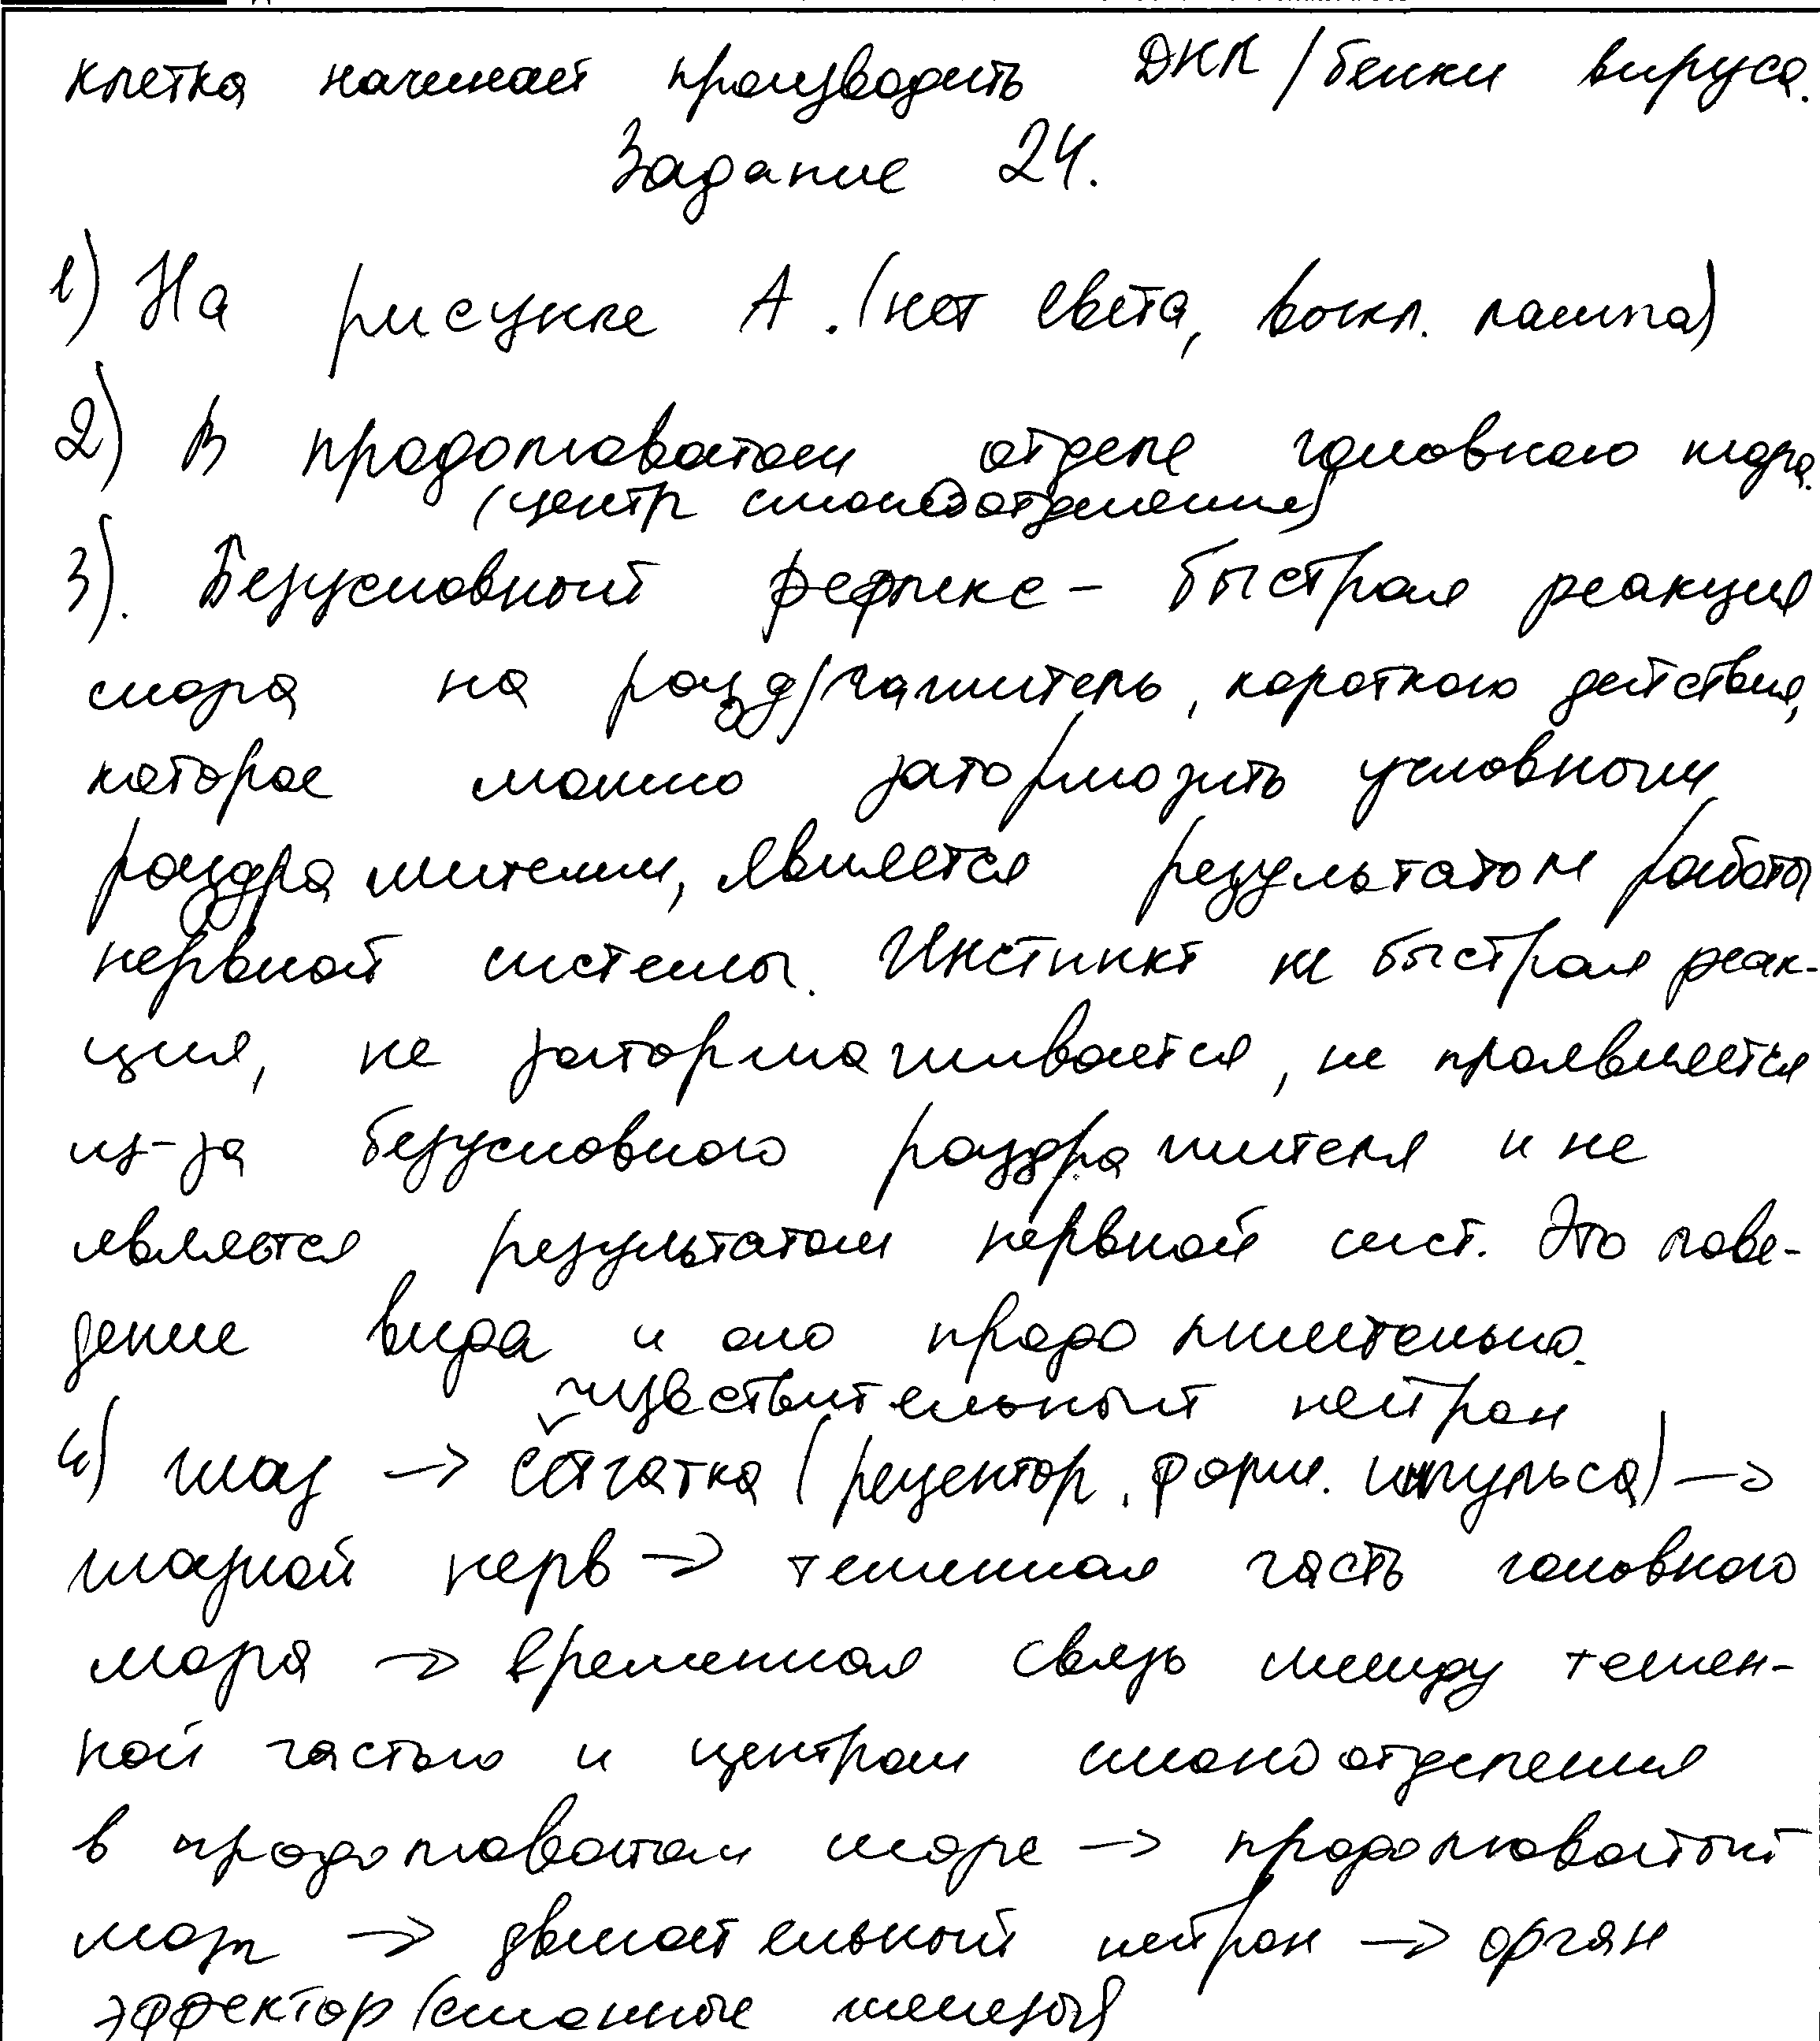 клетка начинает производить ДНК/белки вируса.
Задание 24.
1) На рисунке А. (нет света, выкл. лампа)
2) В продолговатом отделе головного мозга.
(центр слюноотделения)
3). Безусловный рефлекс - быстрая реакция
мозга на раздражитель, короткого действия,
которое можно затормозить условными
раздражителями, является результатом работы
нервной системы. Инстинкт не быстрая реак-
ция, не затормаживается, не проявляется
из-за безусловного раздражителя и не
является результатом нервной сист. Это пове-
дение вида и оно продолжительно.
чувствительный нейрон
4) глаз → сетчатка (рецептор, форм. импульса) →
глазной нерв → теменная часть головного
мозга → временная связь между темен-
ной частью и центром слюноотделения
в продолговатом мозге → продолговатый
мозг → двигательный нейрон → орган
эффектор (слюнные железы)